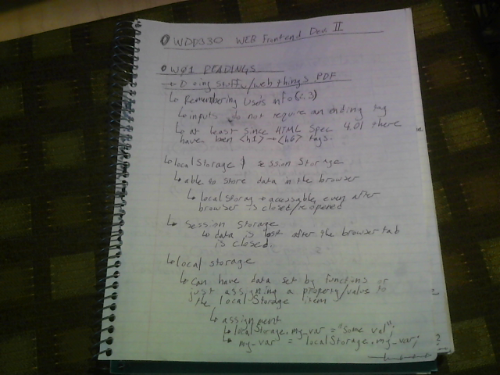 WDD330 WEB Frontend Dev II
W01 READINGS
Doing stuff w/ web things PDF
Remembering Users info (2.3)
inputs do not require an ending tag
at least since HTML Spec 4.01 there
have been <h1> → <h6> tags.
local Storage & session Storage
able to store data in the browser
local Storage is accessable even after
browser is closed/reopened
Session Storage
data is lost after the browser tab
is closed.
local storage
can have data set by functions or
just assigning a property/value to
the local Storage item
assignment
localStorage.my_var = "Some val";
my_var = localStorage.my_var;